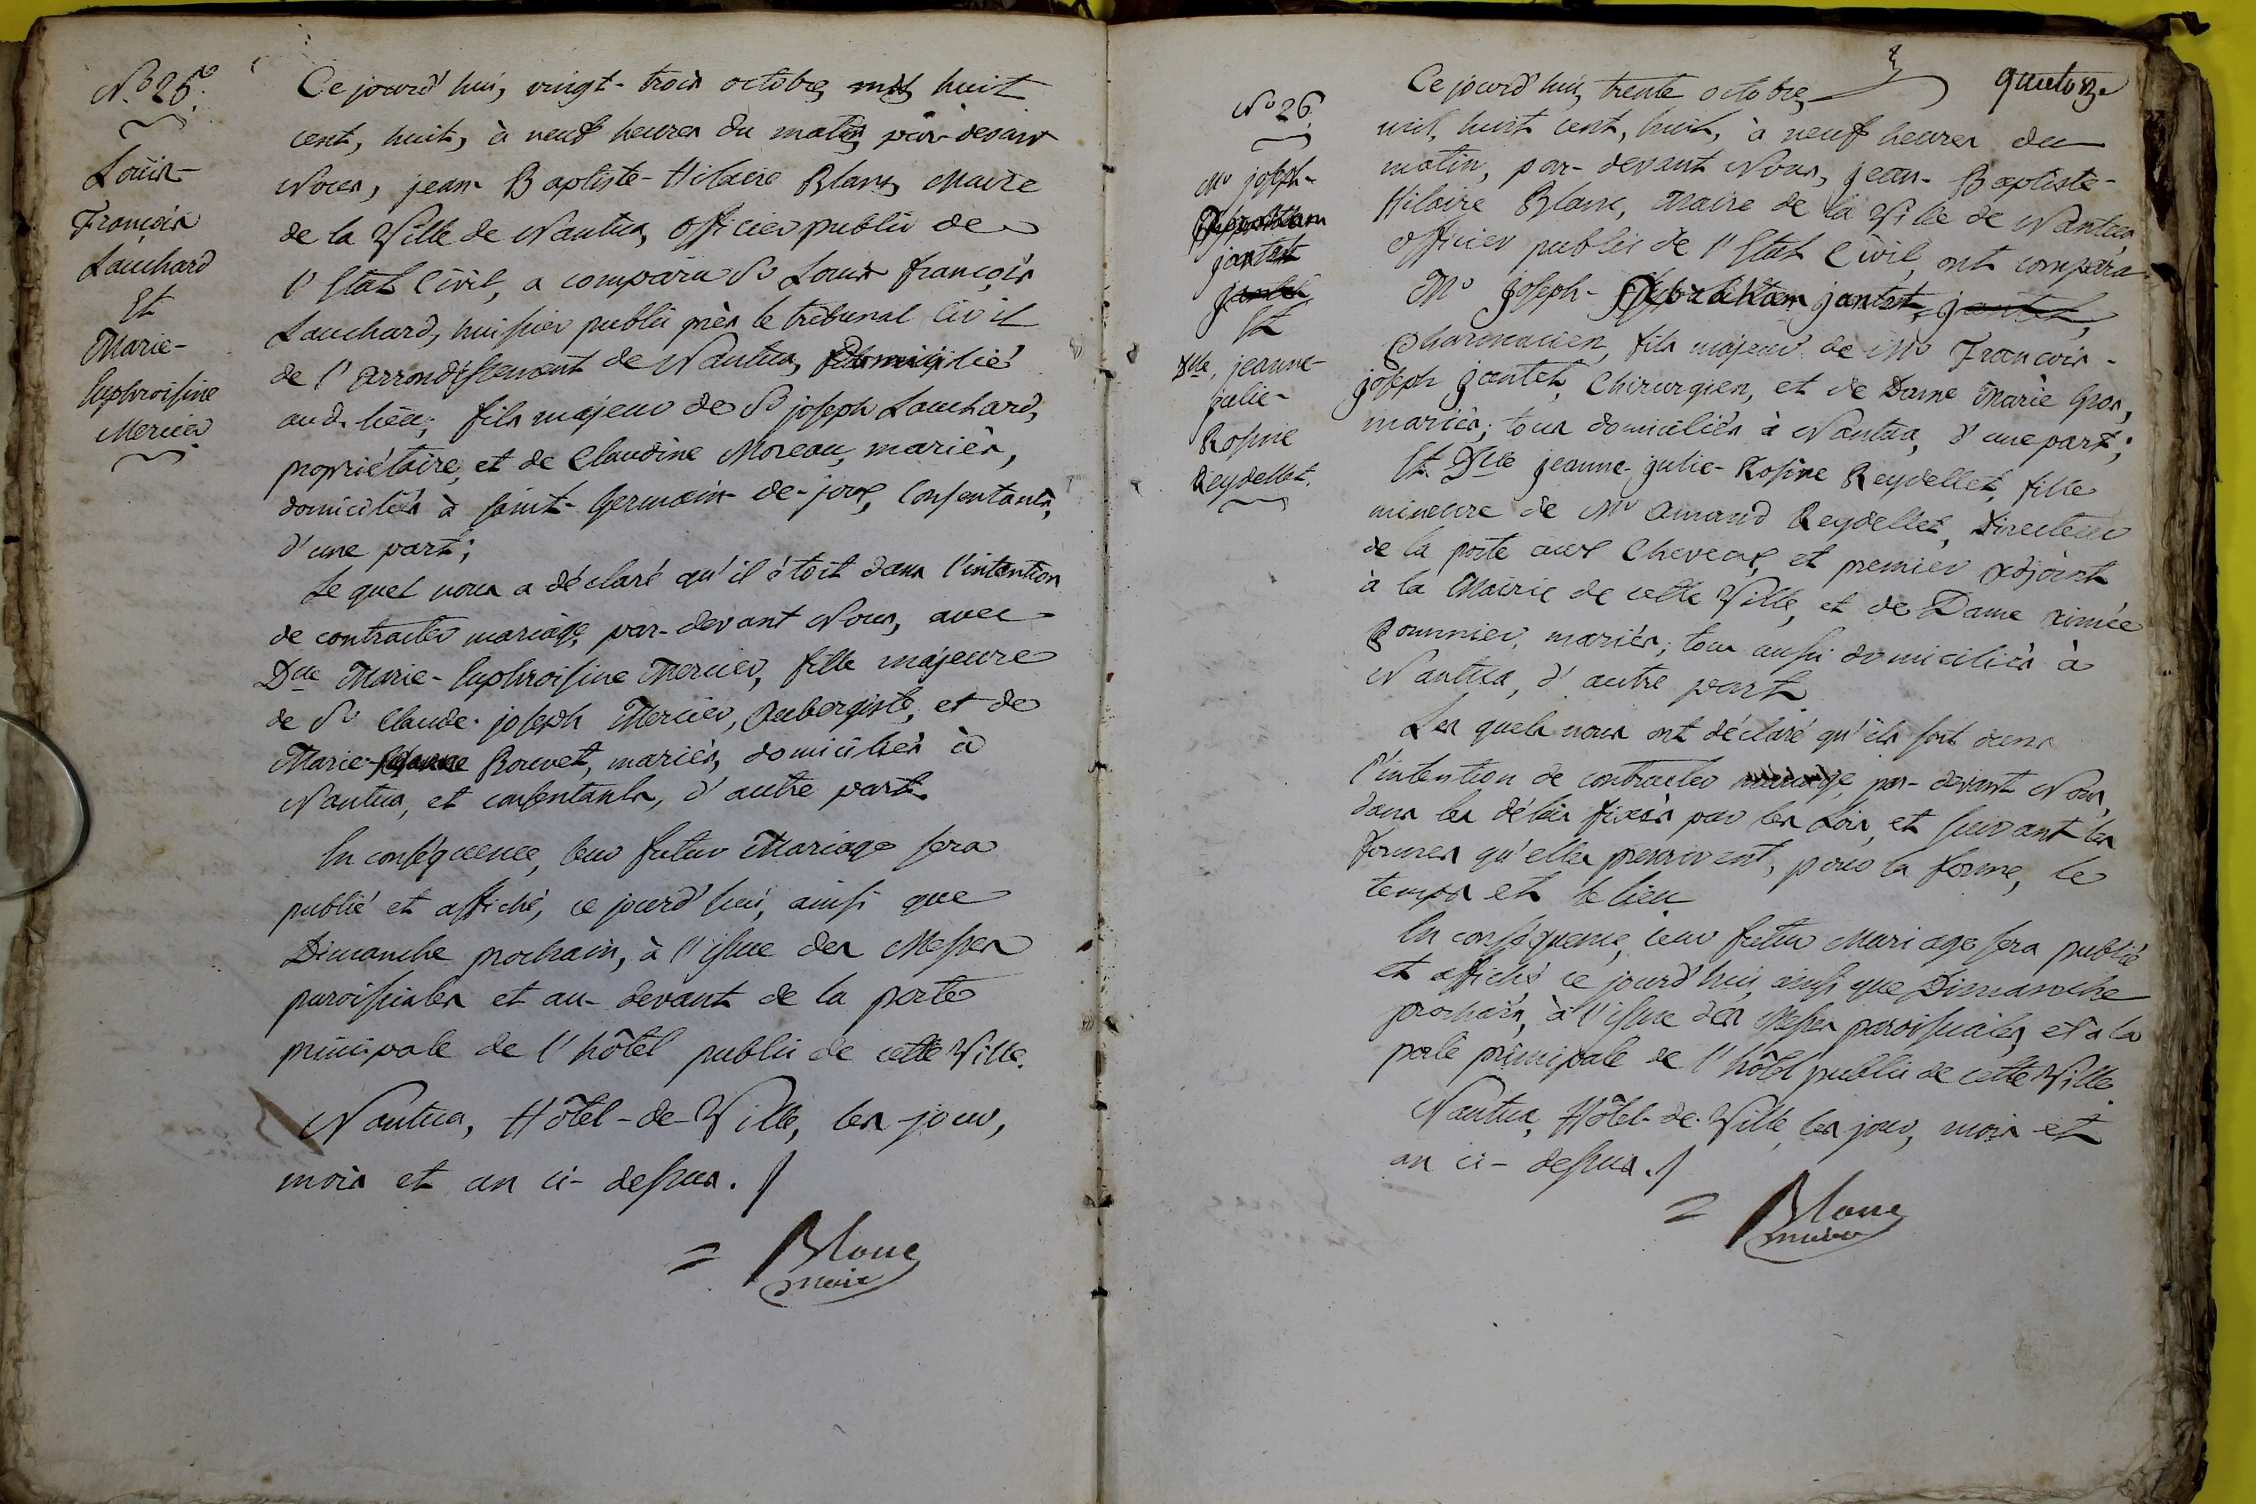 N.º 25.
Louis-
François
Lauchard
Et
Marie-
Euphroisine
Mercier
Ce jourd'hui, vingt-trois octobre, mil huit
cent, huit, à neuf heures du matin, par-devant
Nous, jean Baptiste-Hilaire Blanc, Maire
de la Ville de Nantua, Officier public de
l'Etat Civil, a comparu Sr Louis françois
Lauchard, huissier public près le tribunal civil
de l'arrondissement de Nantua, domicilié
aud. lieu; fils majeur de Sr joseph Lauchard,
propriétaire, et de Claudine Moreau, mariés,
domiciliés à saint-Germain-de-joux, Consentants,
d'une part;
Le quel nous a déclaré qu'il étoit dans l'intention
de contracter mariage, par-devant Nous, avec
Dlle Marie-Euphroisine Mercier, fille majeure
de Sr Claude-joseph Mercier, Aubergiste, et de
Marie- Bouvet, mariés, domiciliés à
Nantua, et consentants, d'autre part.
En conséquence, leur futur Mariage sera
publié et affiché, ce jourd'hui, ainsi que
Dimanche prochain, à l'issue des Messes
paroissiales et au-devant de la porte
principale de l'hôtel public de cette Ville.
Nantua, Hôtel-de-Ville, les jour,
mois et an ci-dessus.
Blanc
maire
quatorze
N.º 26.
Mr joseph-
jantet
jantet
Et
Dlle jeanne-
julie-
Rosine
Reydellet.
Ce jourd'hui, trente octobre,
mil, huit cent, huit, à neuf heures du
matin, par-devant Nous, Jean-Baptiste-
Hilaire Blanc, Maire de la Ville de Nantua,
Officier public de l'Etat Civil, ont comparu
Mr Joseph- jantet, jantet,
Pharmacien, fils majeur de Mr François-
joseph Jantet, Chirurgien, et de Dame Marie Gros,
mariés; tous domiciliés à Nantua, d'une part;
Et Dlle jeanne-julie-Rosine Reydellet, fille
mineure de Mr Amand Reydellet, Directeur
de la poste aux Chevaux, et premier adjoint
à la Mairie de cette Ville, et de Dame Aimée
Bonnier, mariés; tous aussi domiciliés à
Nantua, d'autre part.
Les quels nous ont déclaré qu'ils sont dans
l'intention de contracter mariage, par-devant Nous,
dans les délais fixés par les Lois, et suivant les
formes qu'elles prescrivent, pour la forme, le
temps et le lieu.
En conséquence, leur futur Mariage sera publié
et affiché ce jourd'hui, ainsi que Dimanche
prochain, à l'issue des Messes paroissiales, et à la
porte principale de l'hôtel public de cette Ville.
Nantua, Hôtel-de-Ville, les jour, mois et
an ci-dessus.
Blanc
maire